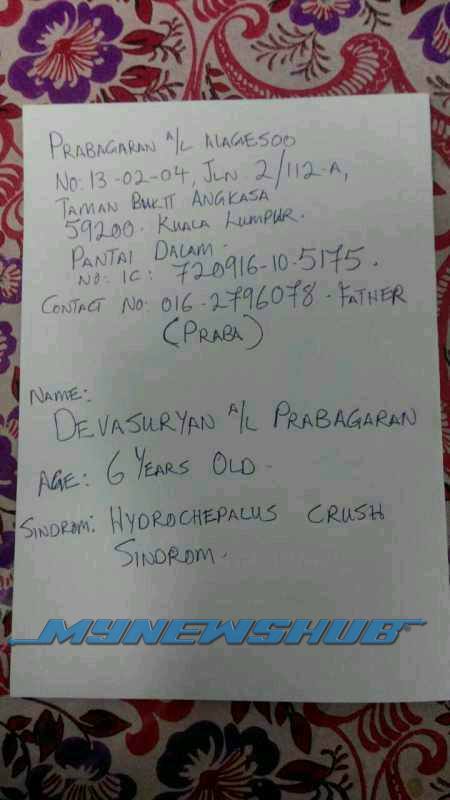 PRABAGARAN A/L NAGESOO
NO: 13-02-04, JLN 2/112-A,
TAMAN BUKIT ANGKASA
59200. KUALA LUMPUR.
PANTAI DALAM.
NO: IC: 720916-10-5175.
CONTACT NO: 016-2796078. FATHER
(PRABA)
NAME:
DEVASURYAN A/L PRABAGARAN
AGE: 6 YEARS OLD.
SINDROM: HYDROCHEPALUS CRUSH
SINDROM.
MYNEWSHUB